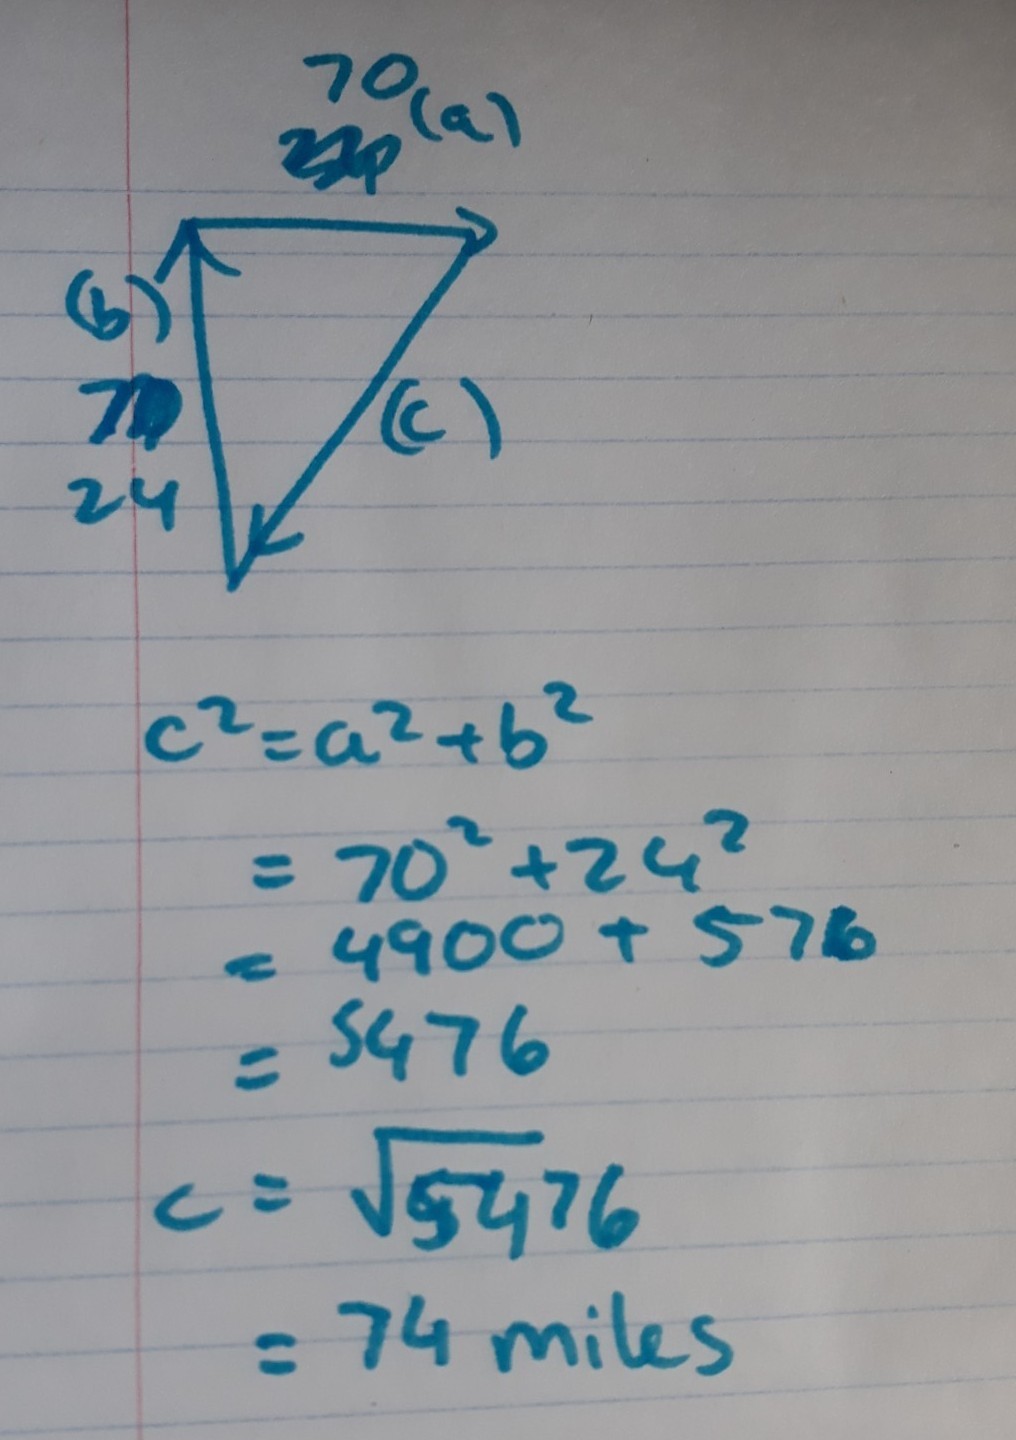 70
(a)
(b)
(c)
24
c² = a² + b²
= 70² + 24²
= 4900 + 576
= 5476
c = √5476
= 74 miles